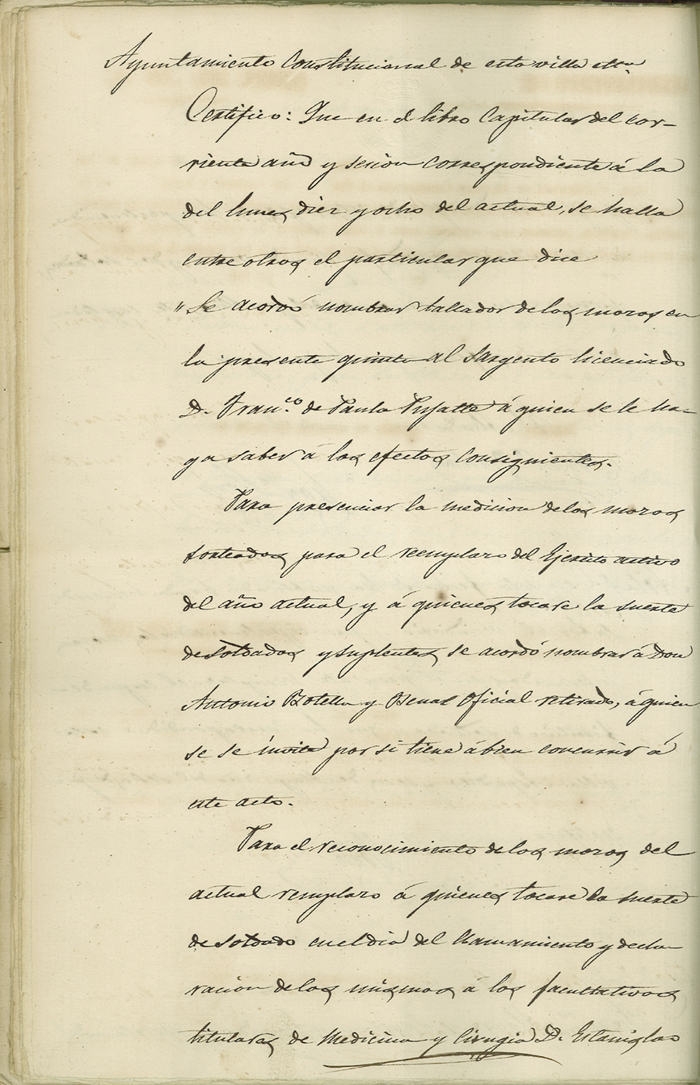 Ayuntamiento Constitucional de esta villa etca
Certifico: Que en el libro Capitular del cor-
riente año y sesion correspondiente á la
del lunes diez y ocho del actual, se halla
entre otros el particular que dice
"Se acordó nombrar tallador de los mozos en
la presente quinta al Sargento licenciado
D. Franco. de Paula á quien se le ha-
ga saber á los efectos consiguientes.
Para presenciar la medicion de los mozos
sorteados para el reemplazo del Ejercito activo
del año actual, y á quienes tocare la suerte
de soldados y suplentes, se acordó nombrar á Don
Antonio Botella y Oficial retirado, á quien
se se invita por si tiene á bien concurrir á
este acto.
Para el reconocimiento de los mozos del
actual remplazo á quienes tocare la suerte
de soldado en el dia del llamamiento y decla
ración de los mismos á los facultativos
titulares de Medicina y Cirugia D. Estanislao